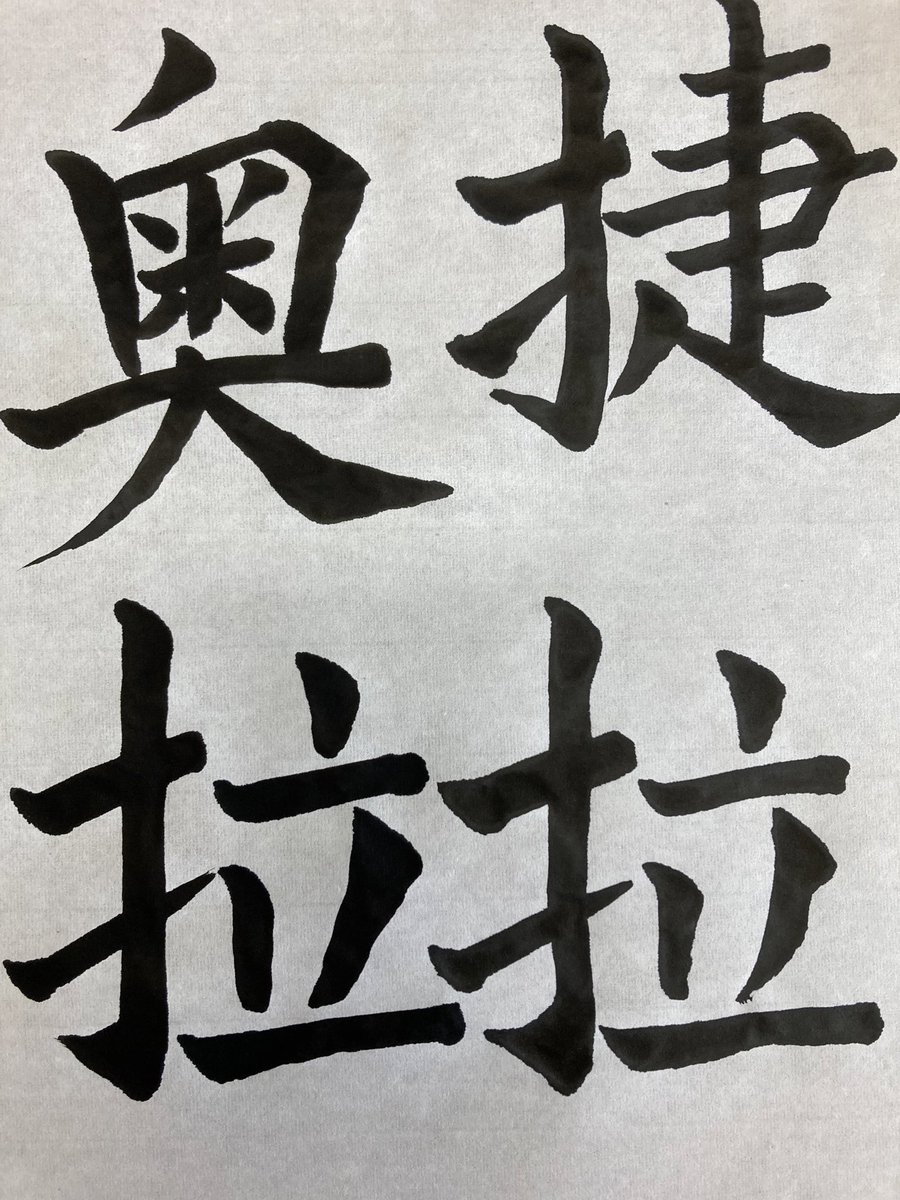 捷拉
奥拉